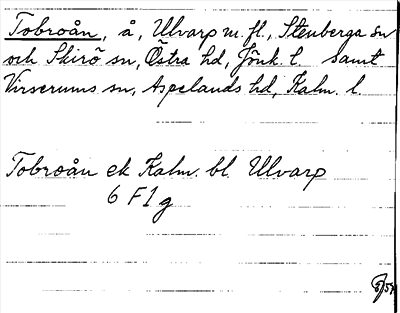 Tobroån, å, Ulvarp m. fl., Stenberga sn
och Skirö sn, Östra hd, Jönk. l. samt
Virserums sn, Aspelands hd, Kalm. l.
Tobroån ek Kalm. bl. Ulvarp
6 F 1 g